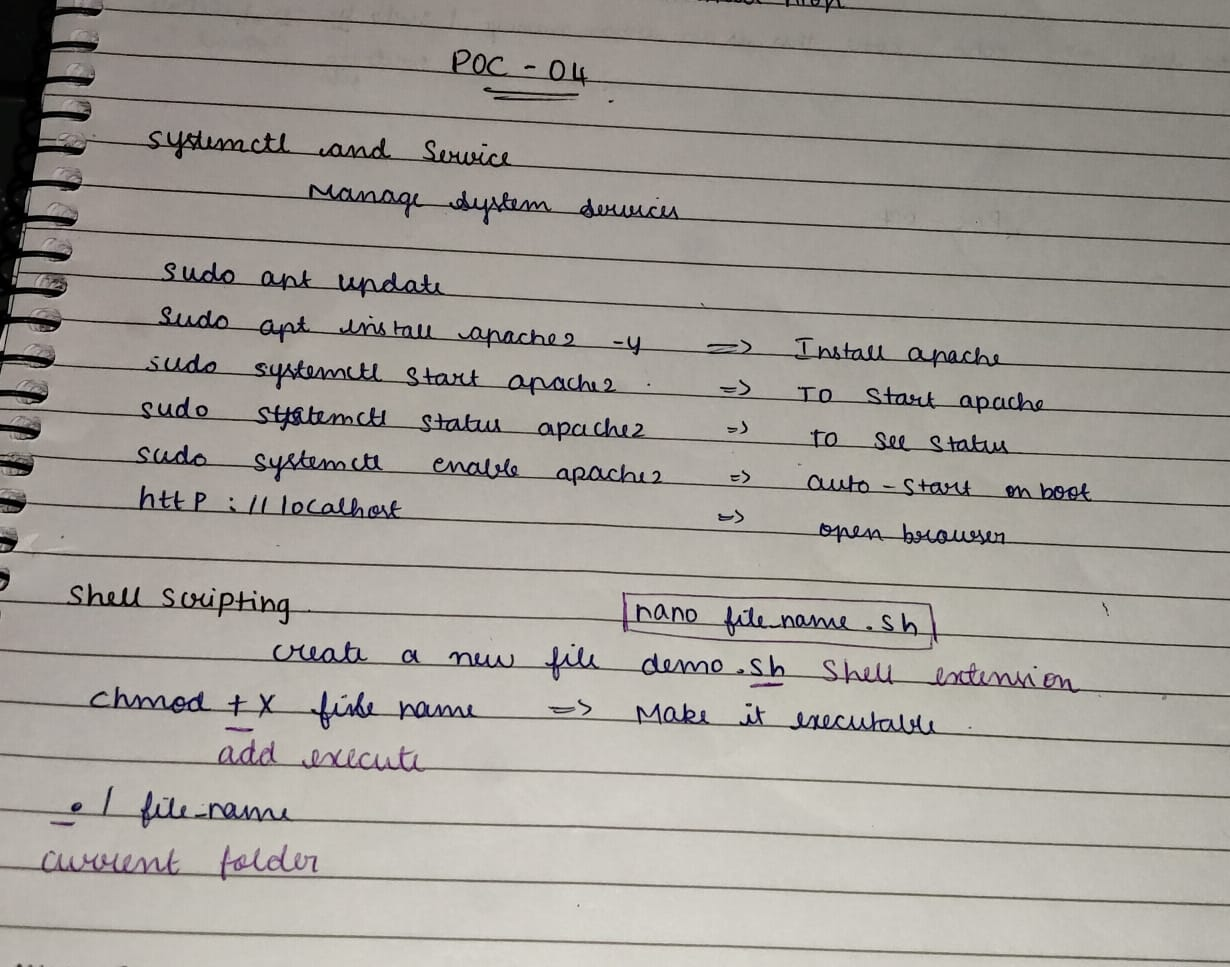 POC - 04
systemctl and Service
Manage system services
sudo apt update
sudo apt install apache2 -y => Install apache
sudo systemctl start apache2 => To start apache
sudo systemctl status apache2 => to see status
sudo systemctl enable apache2 => auto-start on boot
http://localhost => open browser
Shell scripting
nano file_name.sh
create a new file demo.sh Shell extension
chmod +x file name => Make it executable.
add execute
./file_name
current folder